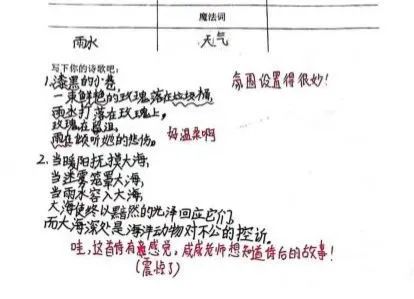 魔法词
雨水 天气
写下你的诗歌吧：
1.漆黑的小巷, 氛围设置得很妙!
一束鲜艳的玫瑰落在垃圾桶,
雨水打落在玫瑰上,
玫瑰在哭泣,
雨在倾听她的悲伤。 好温柔啊
2.当暖阳抚摸大海,
当迷雾笼罩大海,
当雨水容入大海,
大海使终以黯然的光泽回应它们,
而大海深处是海洋动物对不公的控诉。
哇,这首诗有感觉,戚戚老师想知道诗后的故事!
(震惊了)